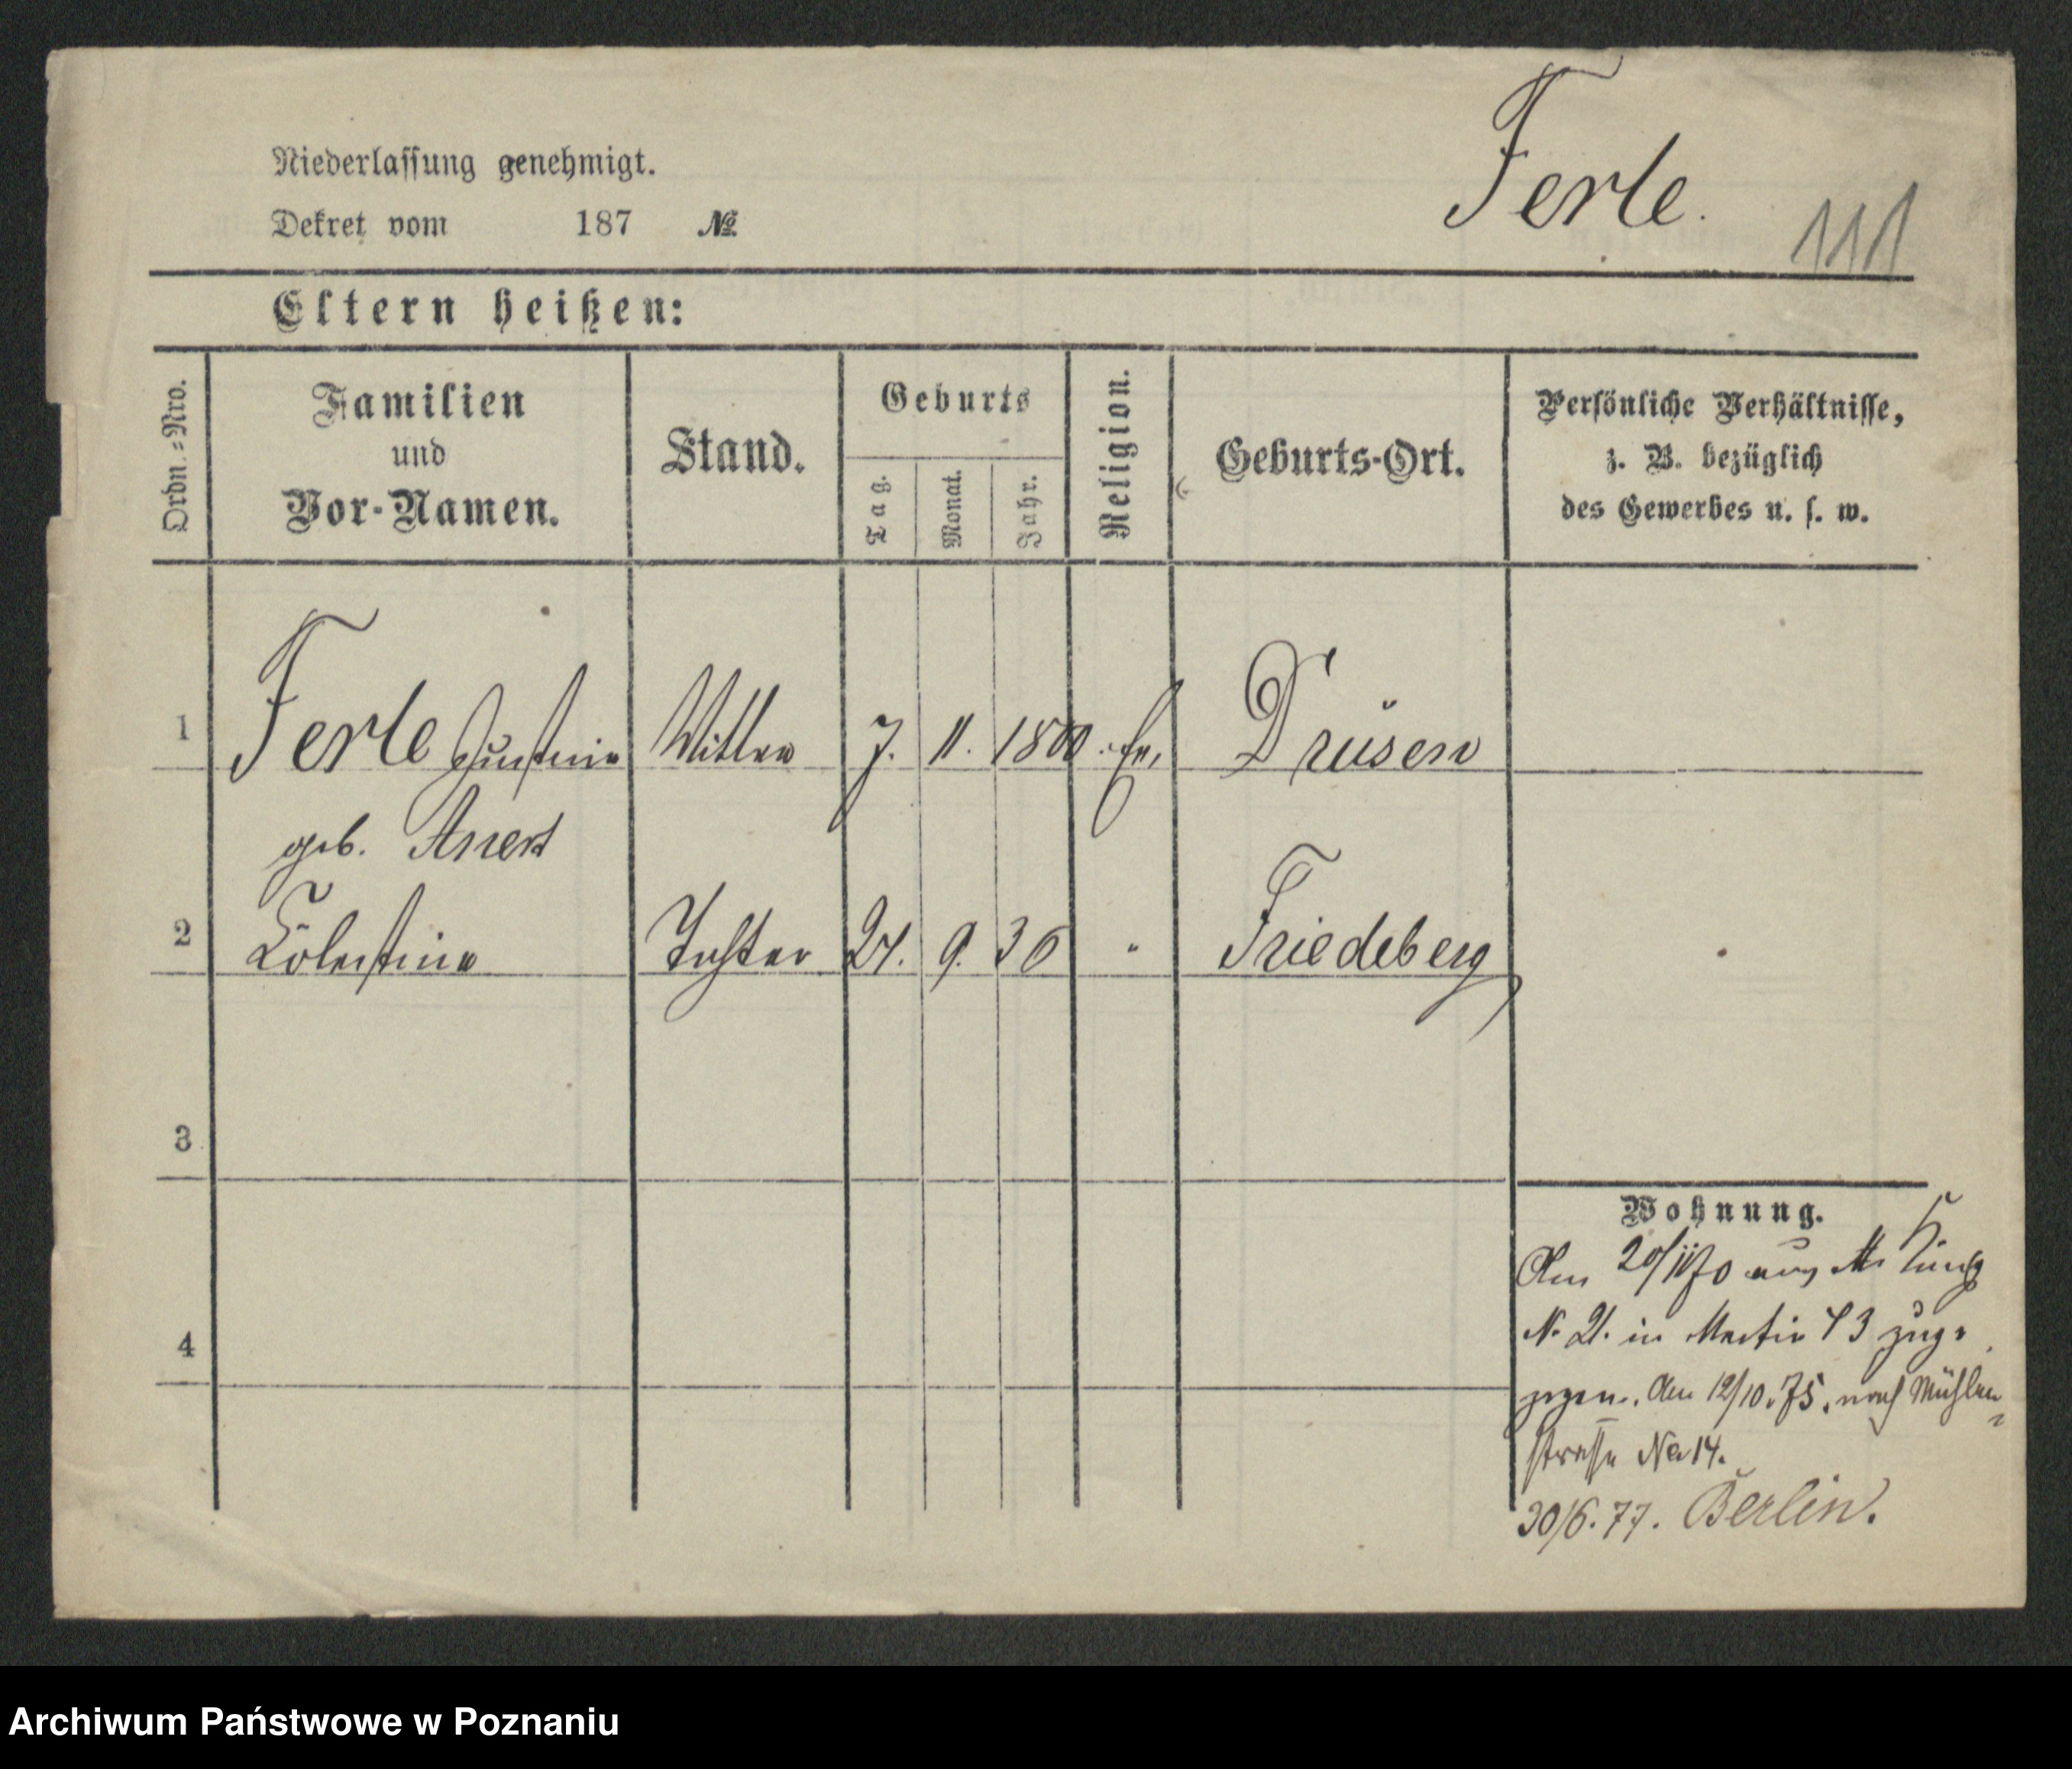 Ferle.
Niederlassung genehmigt.
Dekret vom 187 №
111
Eltern heißen:
Ordn.-Nro.
Familien
und
Vor-Namen.
Stand.
Geburts
Tag.
Monat.
Jahr.
Religion.
Geburts-Ort.
Persönliche Verhältnisse,
z. B. bezüglich
des Gewerbes u. s. w.
1 Ferle Justine Wittwe 7. 11. 1800. Drüsen
geb.
2 Tochter 9. 36 " Friedeberg
3
4
Wohnung.
Am 20/11 70 aus
N. 21. in Martin 73 zuge
zogen. Am 12/10. 75. nach Mühlen-
strasse No 14.
30/6. 77. Berlin.
Archiwum Państwowe w Poznaniu